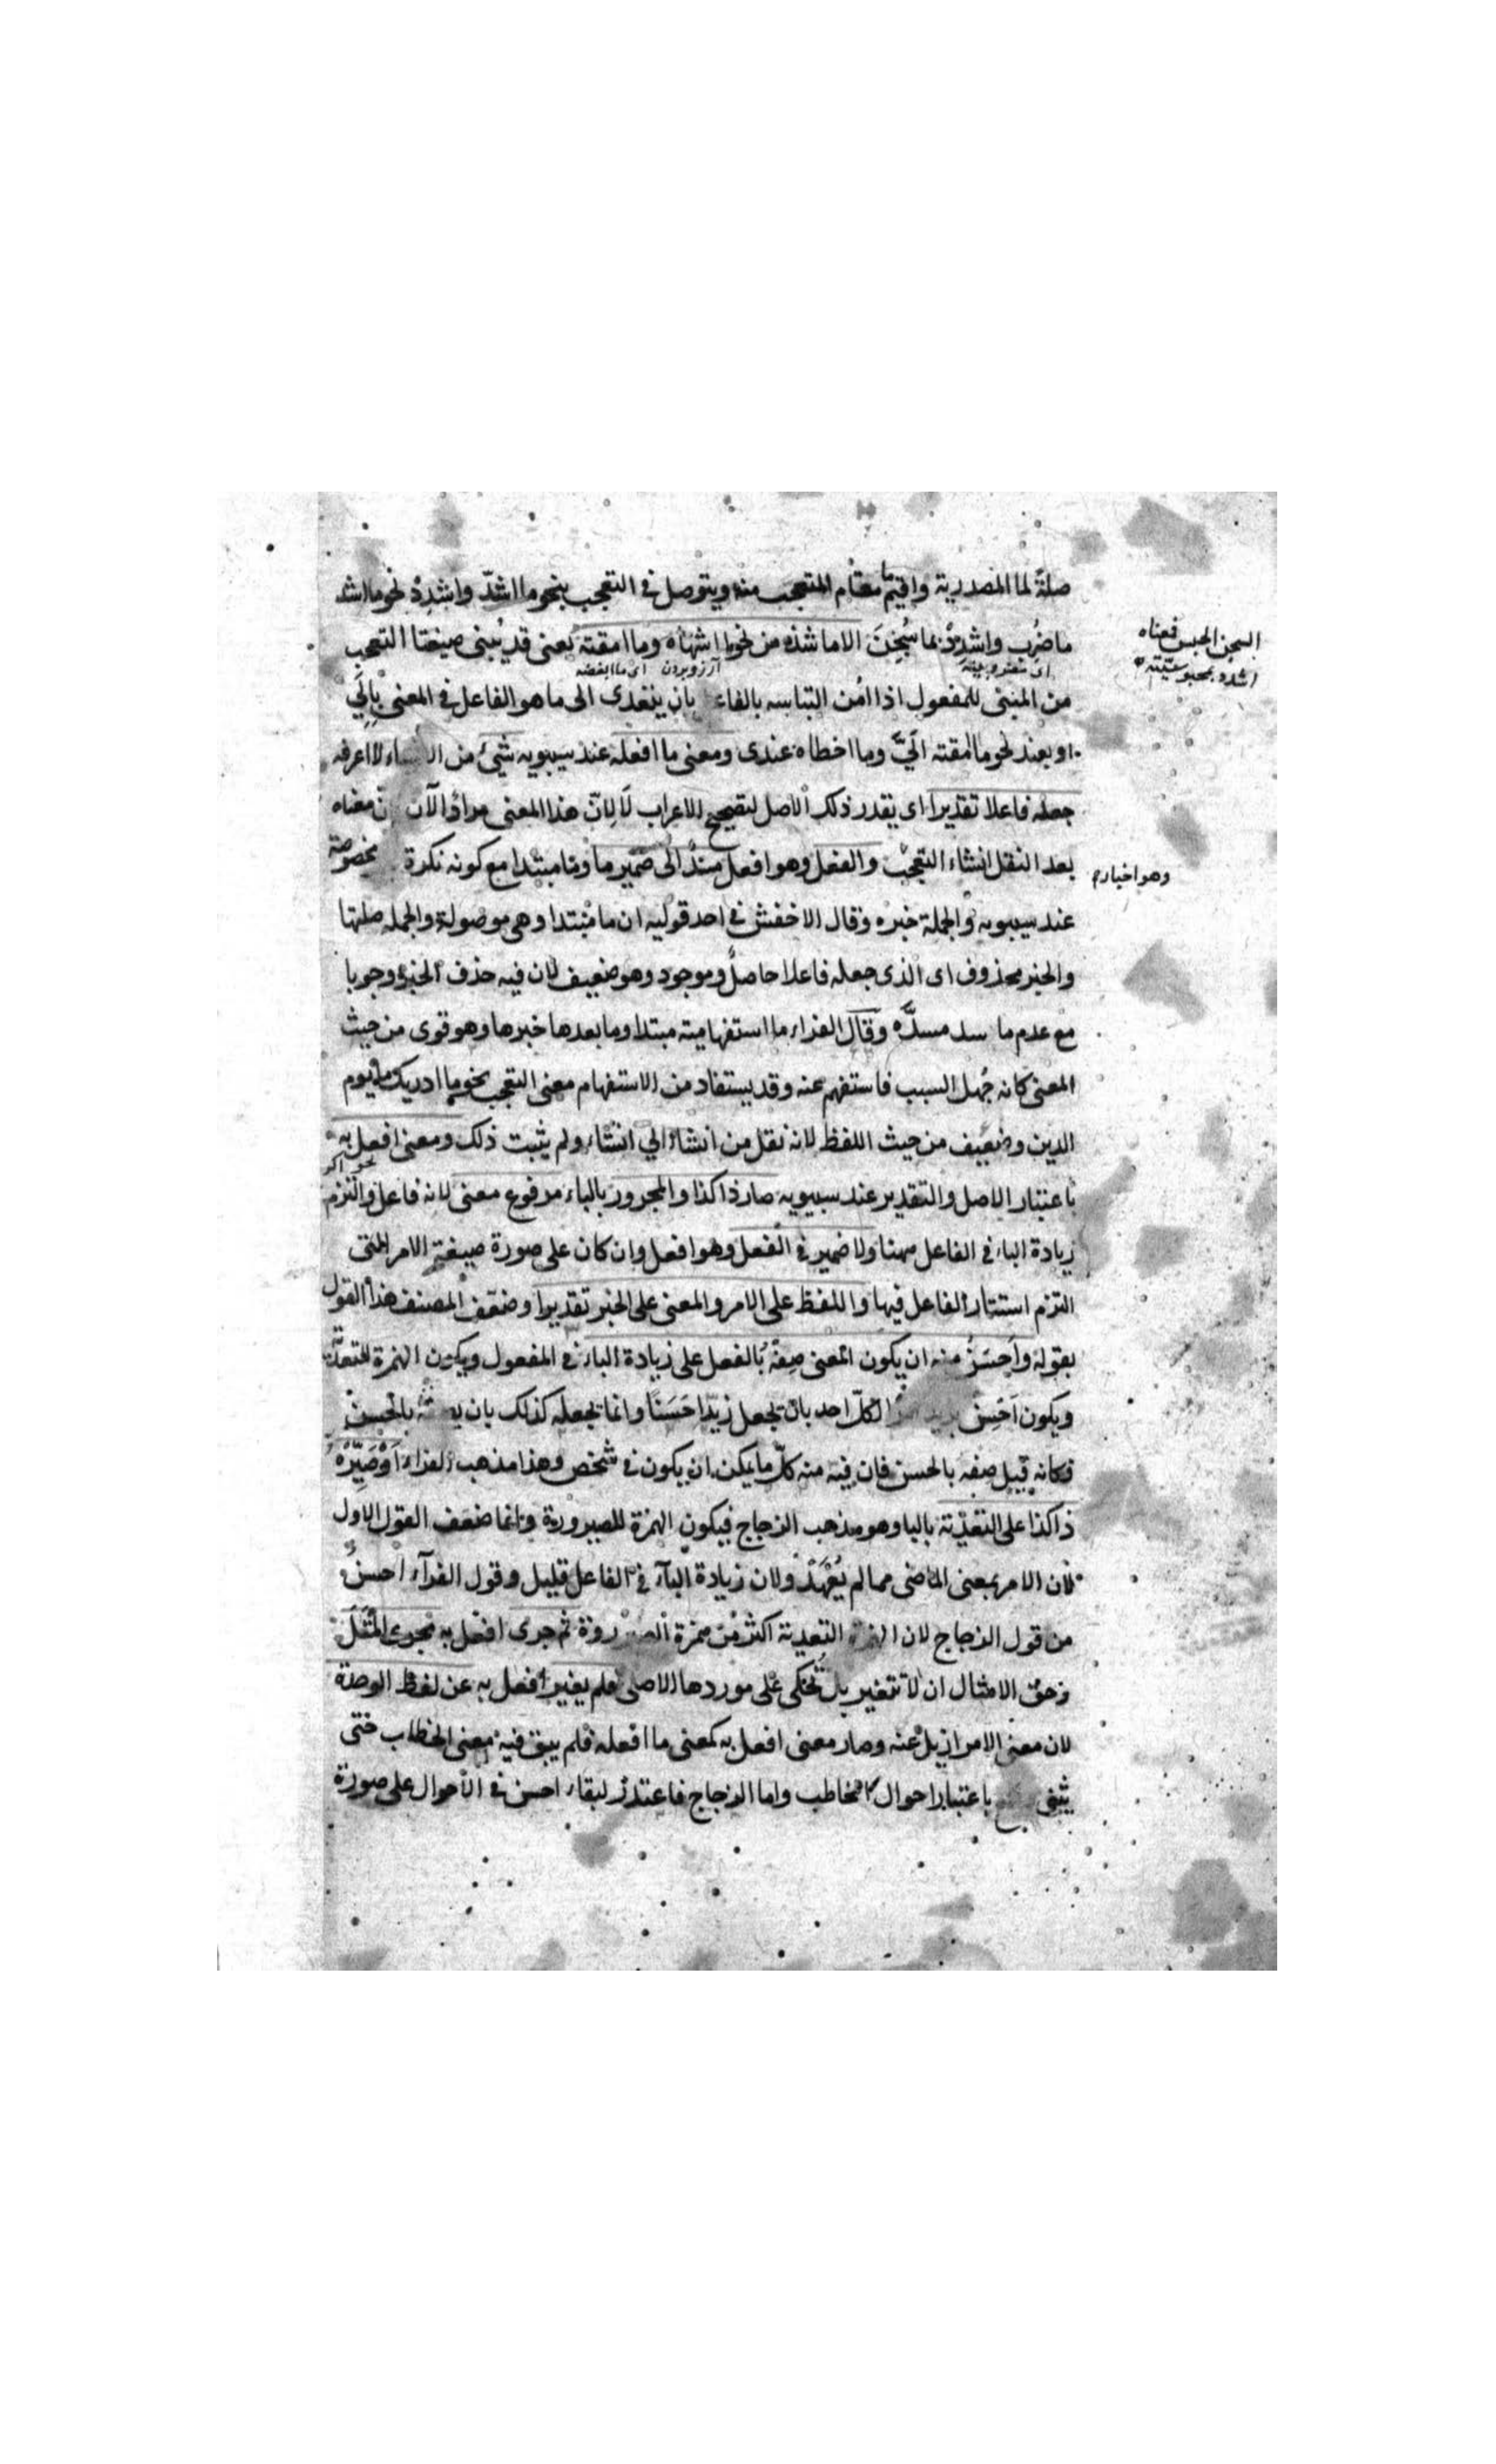 صلةً لما المصدرية واقيم مقام المتعجب منه ويتوصل فى التعجب بنحو ما اشدّ واشدِدْ نحو ما اشد
ما ضُرِب واشدِدْ بما سُجِنَ الا ما شذ من نحو ما اشهاه وما امقته يعنى قد يُبنى صيغتا التعجب
السجن الحبس فمعناه
اشدد بمحبوسيّته
آرزو بردن اى ما ابغضه
من المبنى للمفعول اذا اُمن التباسه بالفاعل بان يتعدى الى ما هو الفاعل فى المعنى بالى
او بعند نحو ما امقته الىَّ وما اخطاه عندى ومعنى ما افعله عند سيبويه شيئ من الاشياء لا اعرفه
جعله فاعلا تقديرا اى يقدر ذلك الاصل لتصحيح الاعراب لا لانّ هذا المعنى مراد الآن لانّ معناه
بعد النقل انشاء التعجب والفعل وهو افعل مسندٌ الى ضمير ما وما مبتدا مع كونه نكرة مخصوصة
عند سيبويه والجملة خبره وقال الاخفش فى احد قوليه ان ما مبتدا وهى موصولة والجملة صلتها
والخبر محذوف اى الذى جعله فاعلا حاصلٌ وموجود وهو ضعيف لان فيه حذف الخبر وجوبا
مع عدم ما سد مسدّه وقال الفراء ما استفهامية مبتدا وما بعدها خبرها وهو قوى من حيث
المعنى كانه جُهل السبب فاستفهم عنه وقد يستفاد من الاستفهام معنى التعجب نحو ما ادريك ما يوم
الدين وضعيف من حيث اللفظ لانه نقل من انشاء الى انشاء ولم يثبت ذلك ومعنى افعل به
باعتبار الاصل والتقدير عند سيبويه صار ذا كذا والمجرور بالباء مرفوع معنى لانه فاعل والتزم
زيادة الباء فى الفاعل ههنا ولا ضمير فى الفعل وهو افعل وان كان على صورة صيغة الامر التى
التزم استتار الفاعل فيها واللفظ على الامر والمعنى على الخبر تقديرا وضعّف المصنف هذا القول
بقوله واَحسَنُ منه ان يكون المعنى صِفْهُ بالفعل على زيادة الباء فى المفعول ويكون الهمزة للتعدية
ويكون اَحْسِن بزيد امرًا لكلّ احد بان يجعل زيدا حَسَنًا وانما يجعله كذلك بان يصفه بالحُسن
فكانه قيل صفه بالحسن فان فيه منه كلّ ما يمكن ان يكون فى شخص وهذا مذهب الفراء اَوْ صَيِّرْهُ
ذا كذا على التعدية بالباء وهو مذهب الزجاج فيكون الهمزة للصيرورة وانما ضعف القول الاول
لان الامر بمعنى الماضى مما لم يُعْهَدْ ولان زيادة الباء فى الفاعل قليل وقول الفراء احسنُ
من قول الزجاج لان الهمزة التعدية اكثر من همزة الصيرورة ثم جرى افعل به مجرى المَثَلَ
وحق الامثال ان لا تتغير بل تُحكى على موردها الاصلى فلم يغير افعل به عن لفظ الوحدة
لان معنى الامر ازيل عنه وصار معنى افعل به كمعنى ما افعله فلم يبق فيه معنى الخطاب حتى
يثنى باعتبار احوال المخاطب واما الزجاج فاعتذر لبقاء احسن فى الاحوال على صورة